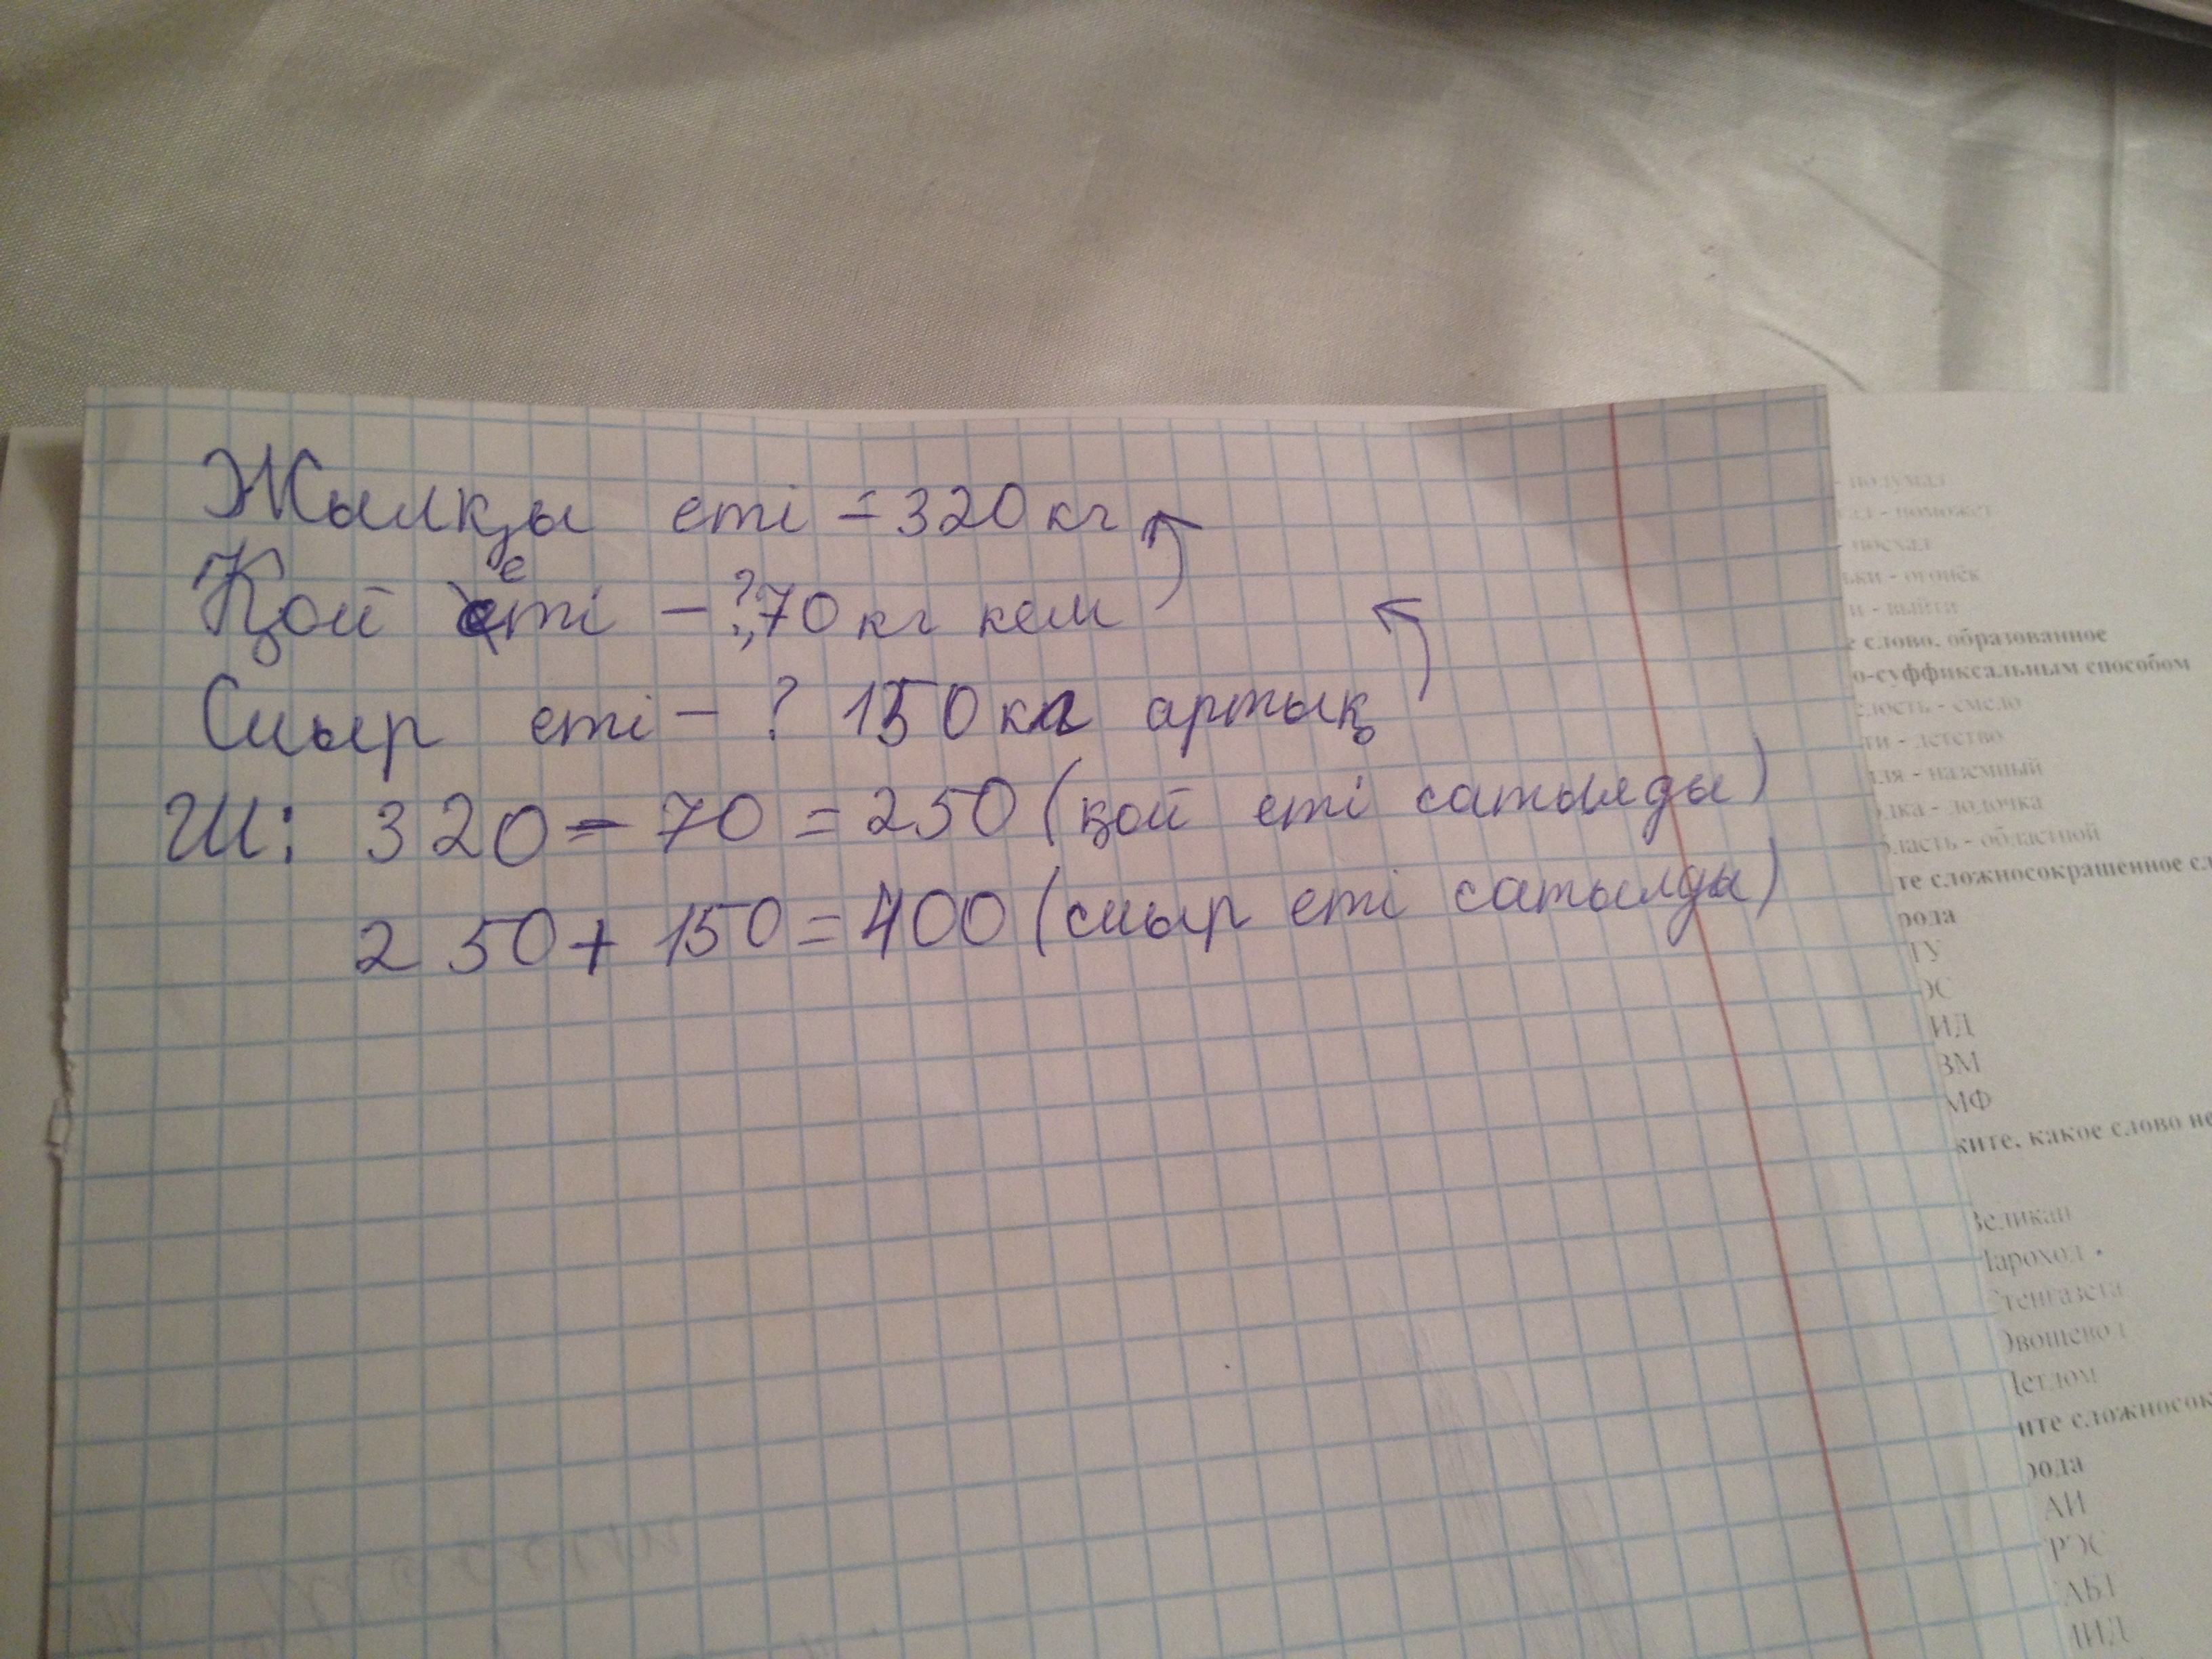 Жылқы еті = 320 кг
Қой еті - ?, 70 кг кем
Сиыр еті - ? 150 кг артық
Ш: 320 - 70 = 250 (қой еті сатылды)
250 + 150 = 400 (сиыр еті сатылды)
- поможет
ьки - огонёк
и - выйти
е слово, образованное
о-суффиксальным способом
елость - смело
ти - детство
ля - наземный
одка - лодочка
бласть - областной
те сложносокращенное сл
рода
ГУ
ЭС
ИД
ВМ
МФ
ките, какое слово не
Великан
Пароход
Стенгазета
Овощевод
Детдом
ите сложносок
рода
АИ
ГРЭС
МИД